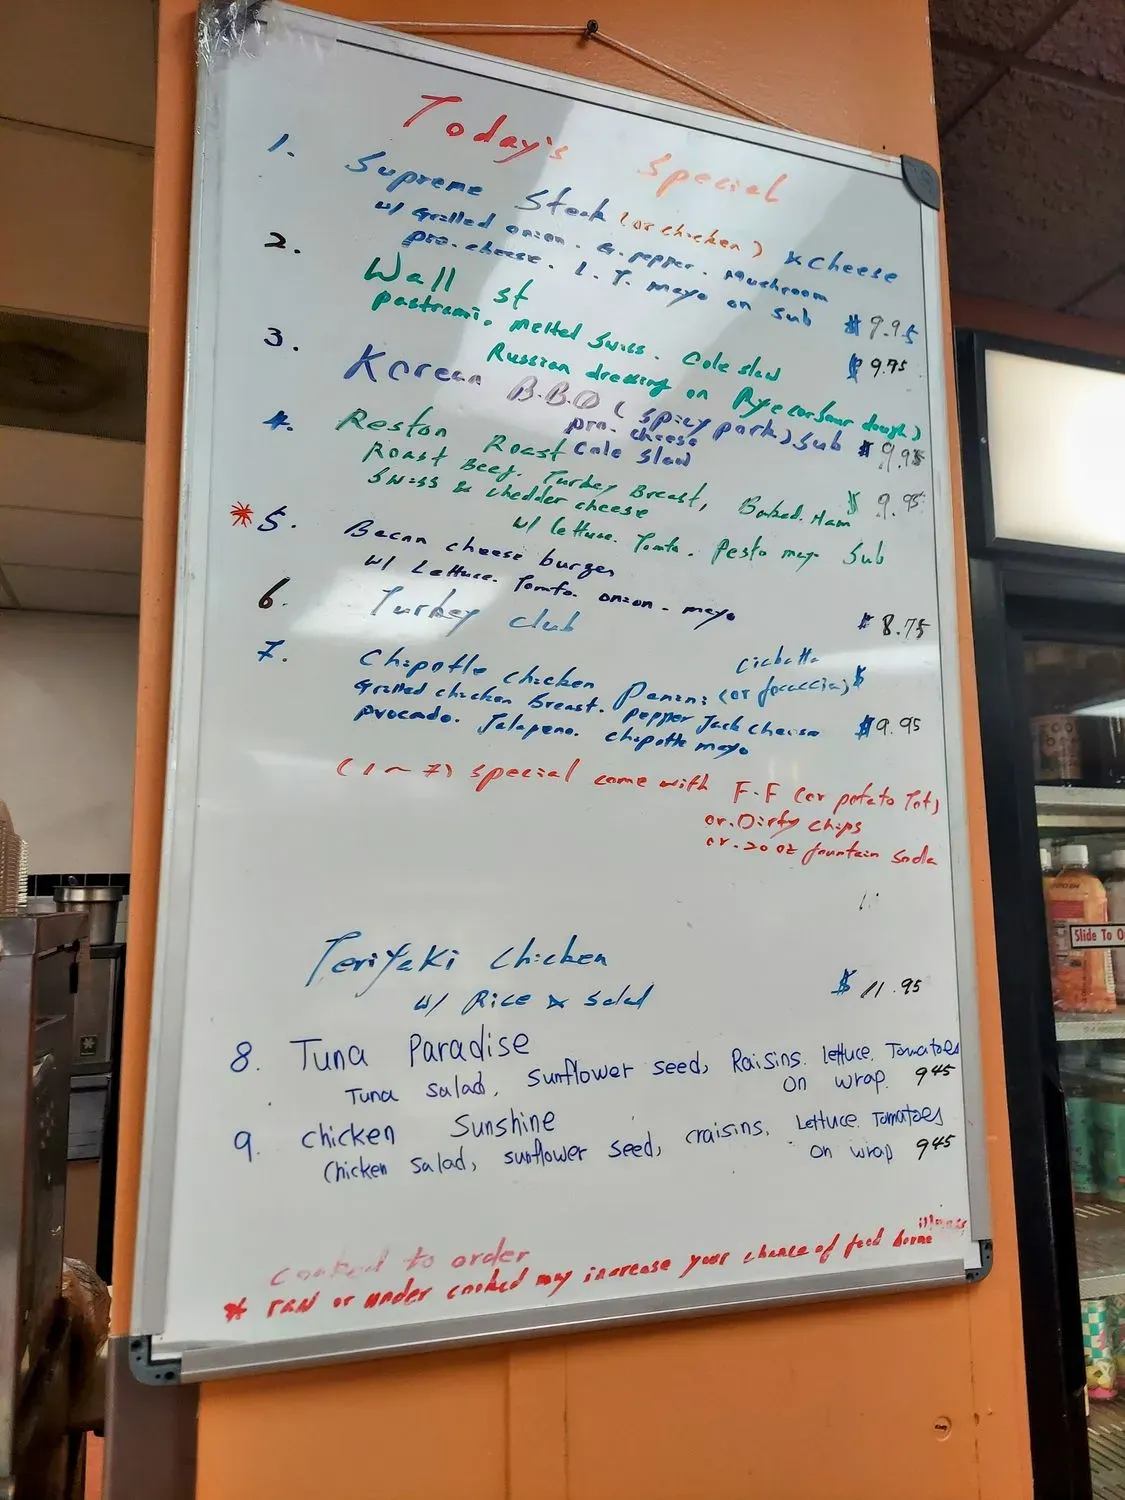 Today's Special
1. Supreme Steak (or chicken) & cheese
w/ Grilled onion. G. pepper. Mushroom
pro. cheese. L. T. mayo on sub $ 9.95
2. Wall st
pastrami. Melted Swiss. Cole slaw $ 9.75
Russian dressing on Rye (or sour dough)
3. Korean B.B.Q (spicy pork) sub $ 9.95
pro. cheese
Cole Slaw
4. Reston Roast
Roast Beef. Turkey Breast, Baked. Ham $ 9.95
Swiss & chedder cheese
w/ lettuce. Tomto. Pesto mayo Sub
* 5. Bacon cheese burger
w/ Lettuce. Tomto. onion. mayo $ 8.75
6. Turkey club
Ciabatta
7. Chipotle chicken Panini (or focaccia) $
Grilled chicken Breast. pepper Jack cheese $ 9.95
Avocado. Jalapeno. chipotle mayo
(1~7) special come with F.F (or potato Tot)
or. Dirty chips
or. 20 oz fountain Soda
Teriyaki Chicken
w/ Rice & Salad $ 11.95
8. Tuna Paradise
Tuna Salad, sunflower seed, Raisins. lettuce. Tomatoes
on wrap. 9 45
9. chicken Sunshine
Chicken Salad, sunflower seed, craisins, Lettuce. Tomatoes
on wrap 9 45
cooked to order
illness
* raw or under cooked may increase your chance of food borne
Slide To O